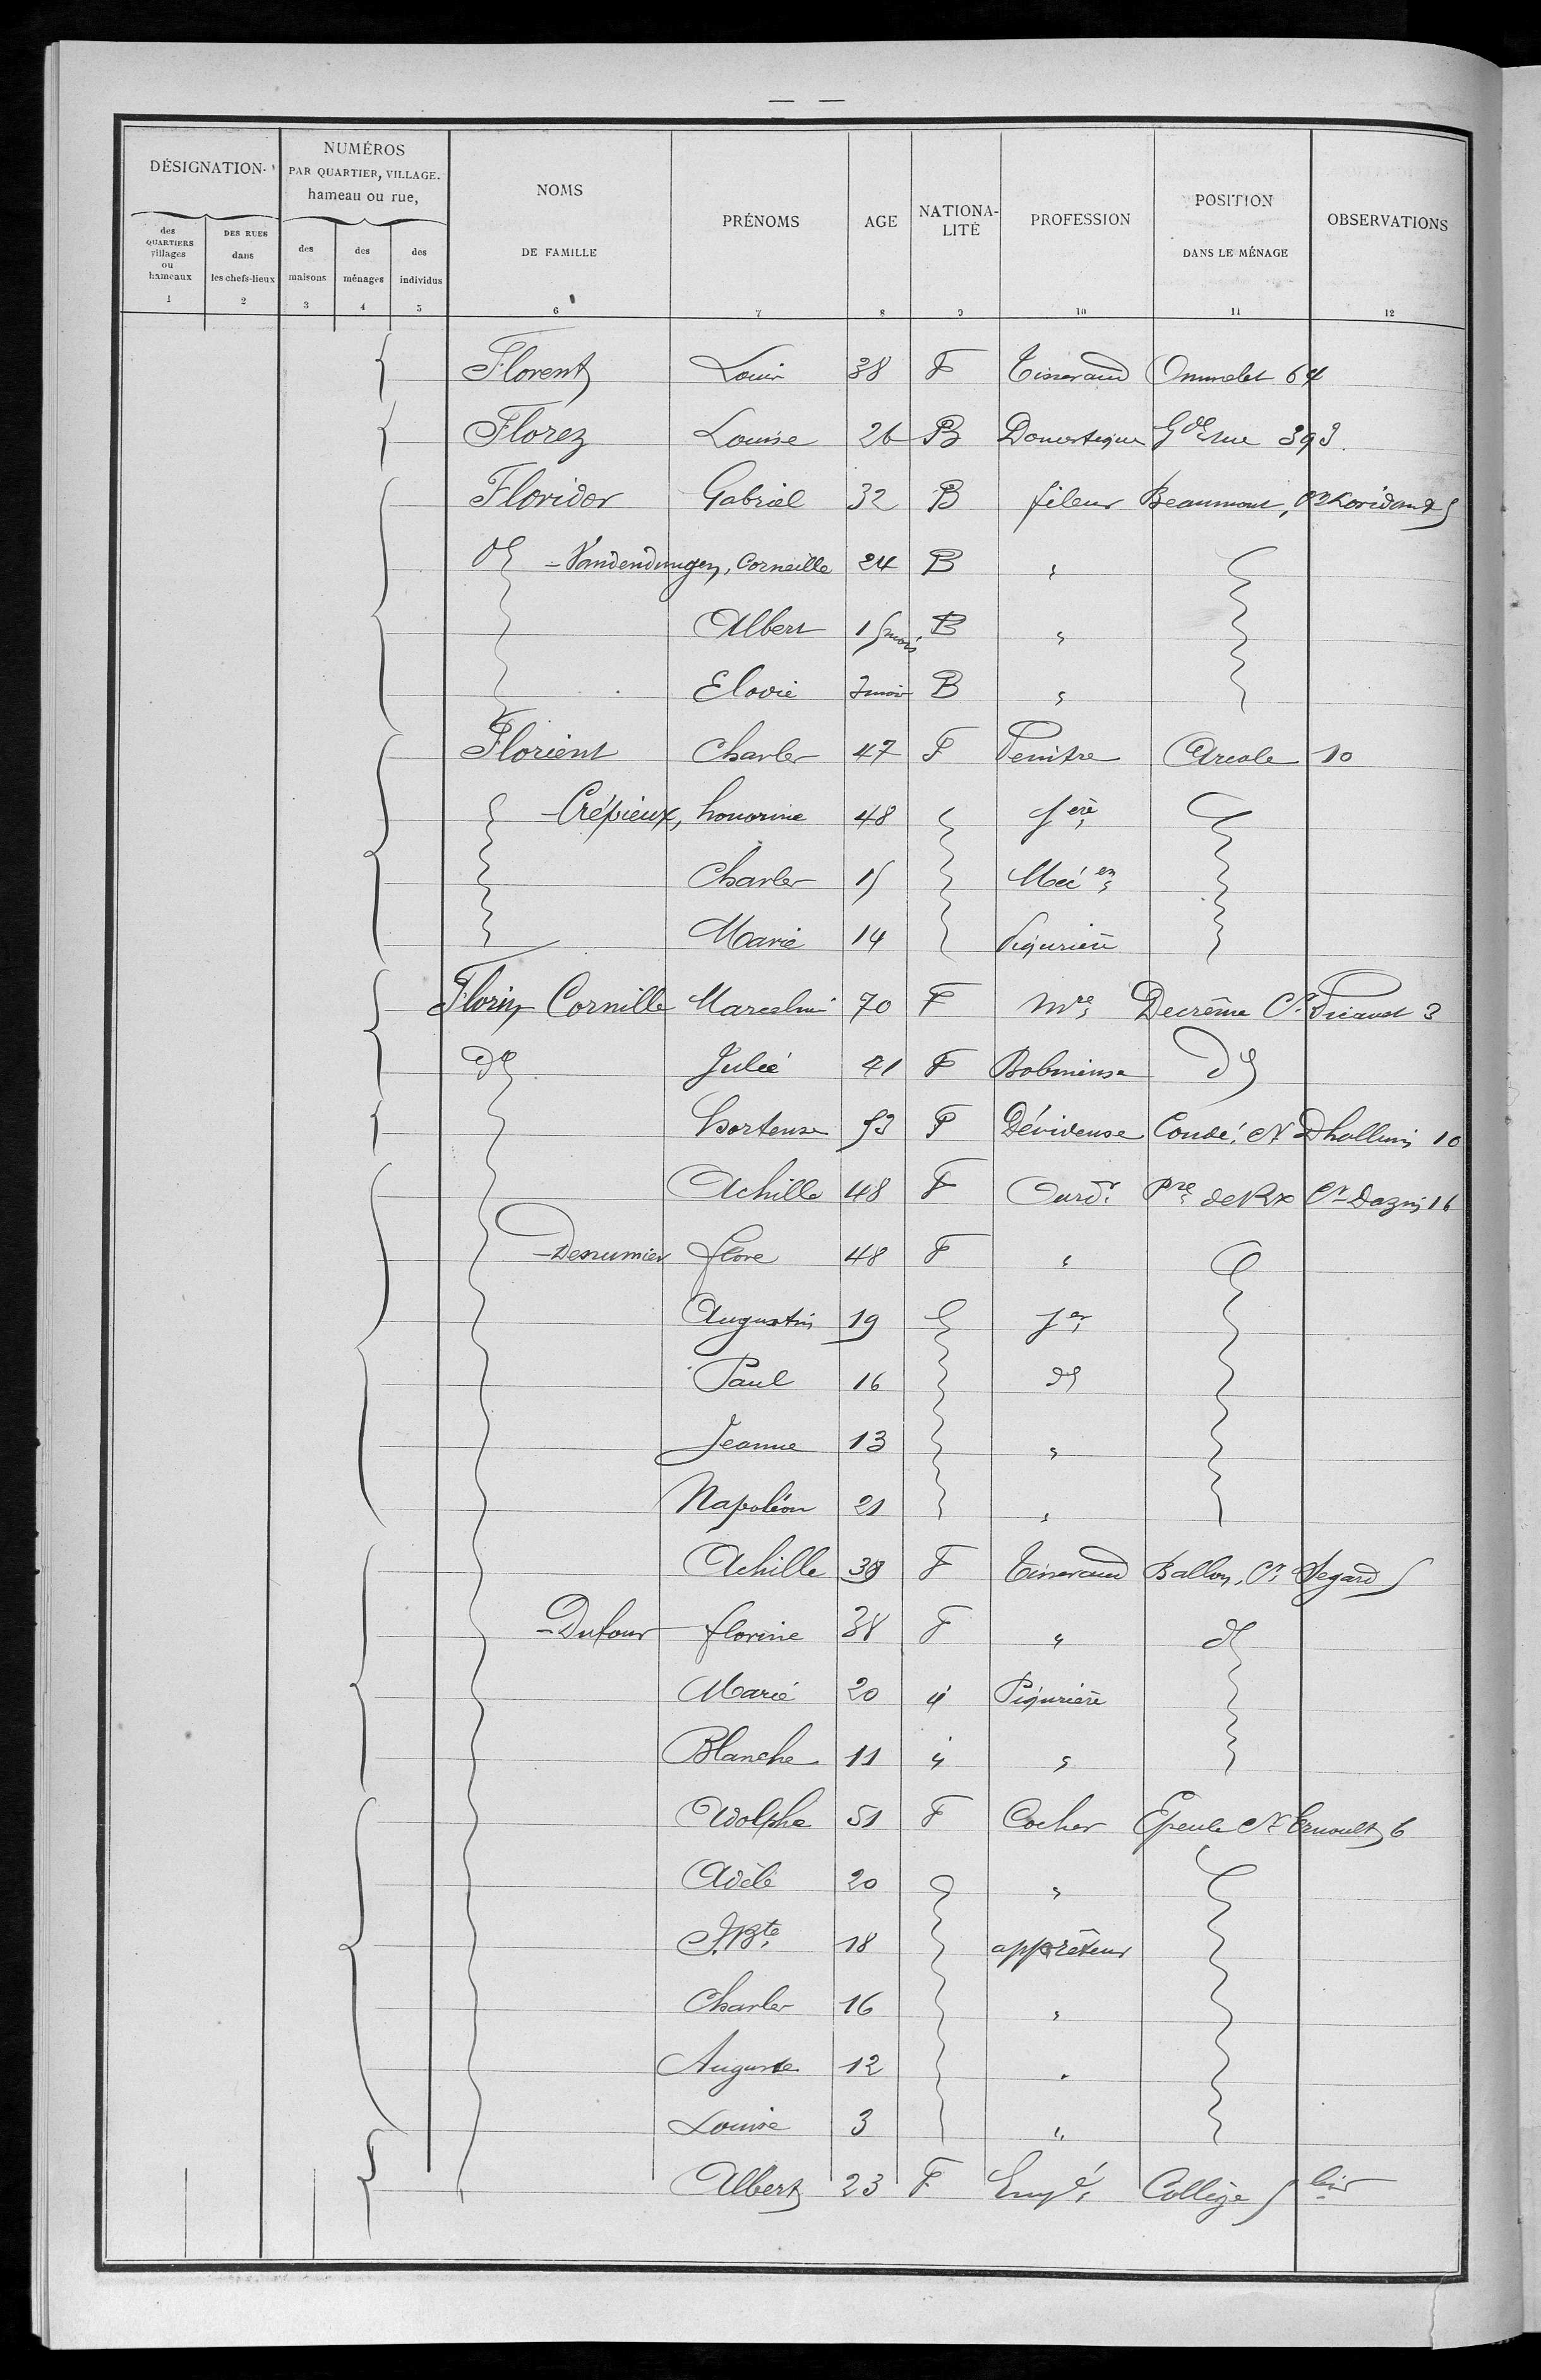 DÉSIGNATION
NUMÉROS PAR QUARTIER, VILLAGE. hameau ou rue,
NOMS DE FAMILLE
PRÉNOMS
AGE
NATIONA-LITÉ
PROFESSION
POSITION DANS LE MÉNAGE
OBSERVATIONS
des QUARTIERS villages ou hameaux
DES RUES dans les chefs-lieux
des maisons
des ménages
des individus
1 2 3 4 5 6 7 8 9 10 11 12
Florent Louis 38 F Tisserand Ommelet 64
Florez Louise 26 B Domestique Gde rue 393
Floridor Gabriel 32 B fileur Beaumont, Cr Loridant 5
d° - Vandendungen, Corneille 24 B "
Albert 15 mois B "
Elovie 3 mois B "
Florient Charles 47 F Peintre Arcole 10
- Crépieux, honorine 48 jère
Charles 15 Mécen
Marie 14 Piqurière
Florin Cornille Marceline 70 F Mre Decrême Cr Picavet 3
d° Julie 41 F Bobineuse d°
hortense 53 F Dévideuse Condé. Cr Dhalluin 10
Achille 48 F Ourdr Pre de Rx Cr Dazin 16
- Desrumier flore 48 F "
Augustin 19 jer
Paul 16 d°
Jeanne 13 "
Napoléon 21 "
Achille 39 F Tisserand Ballon, Cr Segard 5
- Dufour florine 38 F " d°
Marie 20 " Piqurière
Blanche 11 " "
Adolphe 51 F Cocher Epeule Cr Ernoult 6
Adèle 20 "
J. Bte 18 apprêteur
Charles 16 "
Auguste 12 "
Louise 3 "
Albert 23 F Empé Collège 5 bis